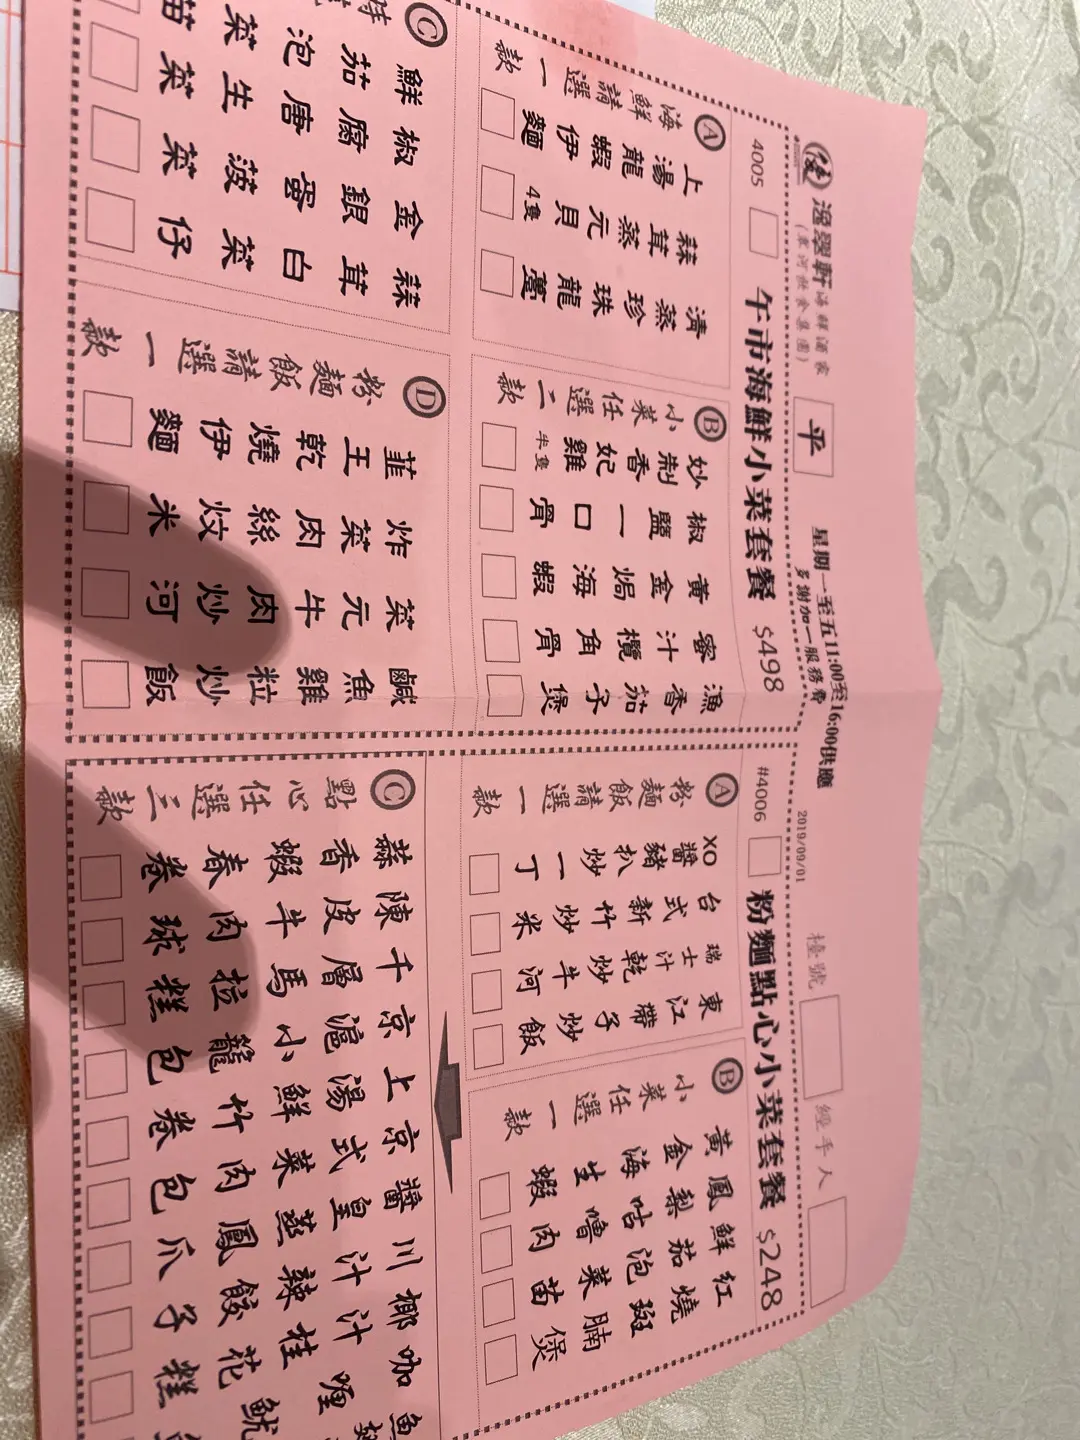 逸翠軒海鮮酒家
(東河飲食集團)
平
星期一至五11:00至16:00供應
多謝加一服務費
2019/09/01
檯號
經手人
4005
午市海鮮小菜套餐 $498
A 海鮮請選一款
上湯龍蝦伊麵
蒜茸蒸元貝 4隻
清蒸珍珠龍躉
B 小菜任選二款
妙制香妃雞半隻
椒鹽一口骨
黃金焗海蝦
蜜汁欖角骨
漁香茄子煲
C
鮮茄泡菜苗
椒腐唐生菜
金銀蛋菠菜
蒜茸白菜仔
D 粉麵飯請選一款
韭王乾燒伊麵
炸菜肉絲炆米
菜元牛肉炒河
鹹魚雞粒炒飯
#4006
粉麵點心小菜套餐 $248
A 粉麵飯請選一款
XO醬豬扒炒一丁
台式新竹炒米
瑞士汁乾炒牛河
東江帶子炒飯
B 小菜任選一款
黃金海生蝦
鳳梨咕嚕肉
鮮茄泡菜苗
紅燒斑腩煲
C 點心任選三款
蒜香蝦春卷
陳皮牛肉球
千層馬拉糕
京滬小籠包
上湯鮮竹卷
京式菜肉包
醬皇蒸鳳爪
川汁辣餃子
椰汁桂花糕
咖喱魷
魚